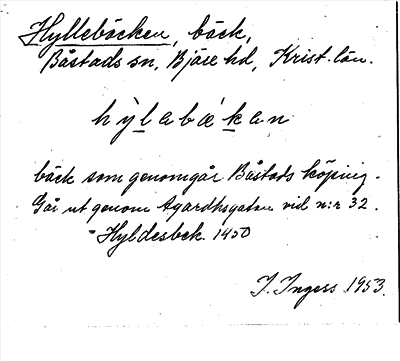 Hyllebäcken, bäck,
Båstads sn, Bjäre hd, Krist. län.
hỳlabækan
bäck som genomgår Båstads köping.
Går ut genom Agardhsgatan vid n:r 32.
Hyldesbek. 1450
I. Ingers 1953.